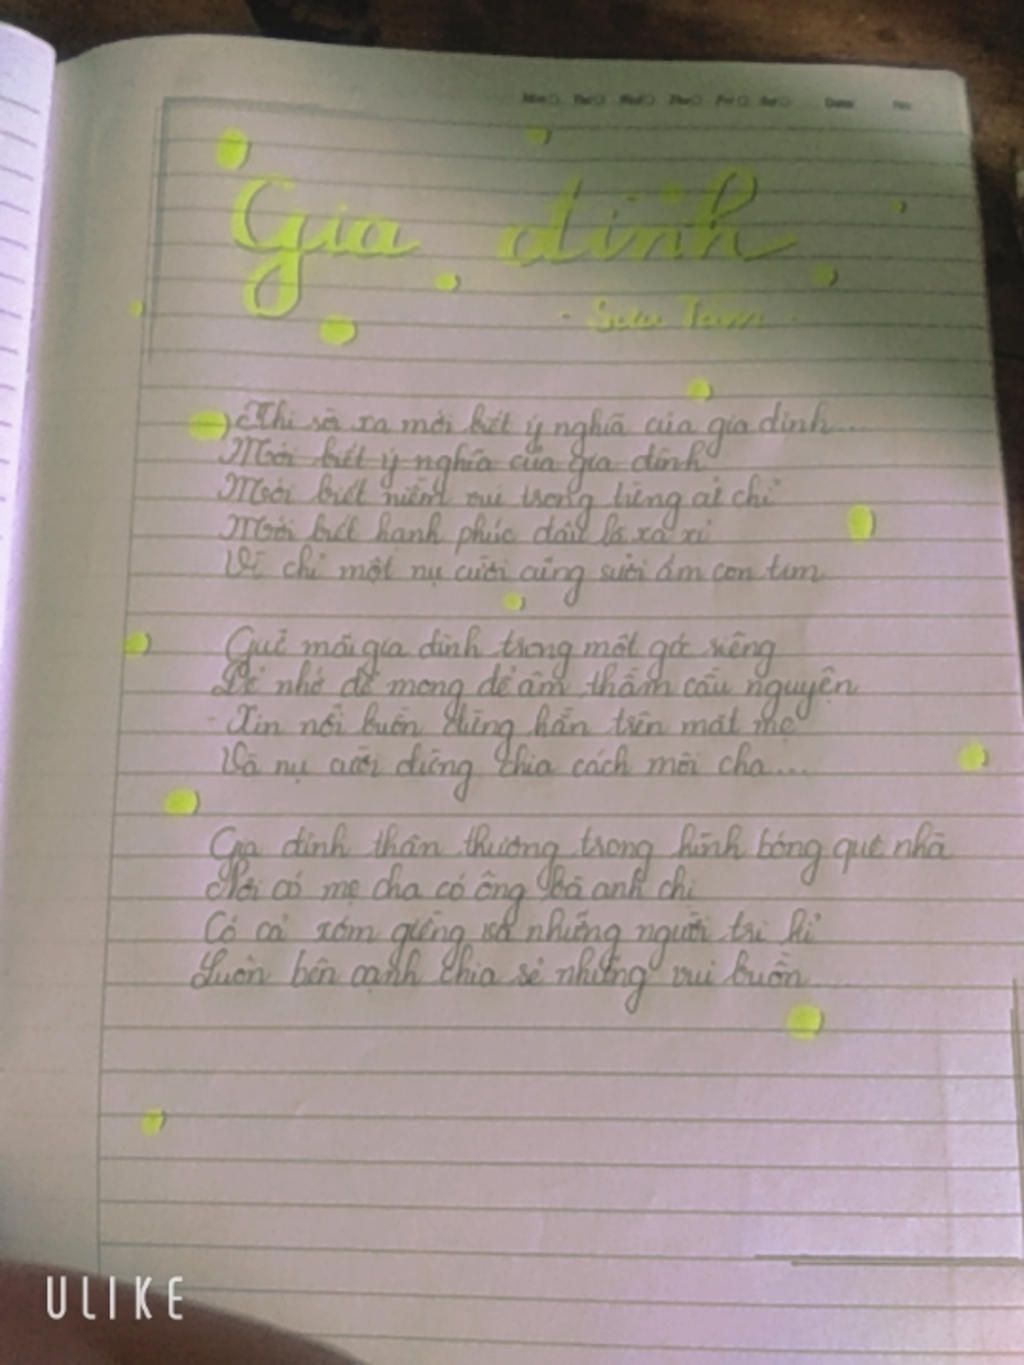 Mon Tue Wed Thu Fri Sat Date No
Gia đình
- Sưu Tầm -
Khi sẽ ra mới biết ý nghĩa của gia đình...
Mới biết ý nghĩa của gia đình
Mới biết niềm vui trong tiếng ai chỉ
Mới biết hạnh phúc đâu là xa xỉ
Vì chỉ một nụ cười cũng sưởi ấm con tim
Quẻ mãi gia đình trong một góc riêng
Để nhớ để mong để âm thầm cầu nguyện
- Xin nỗi buồn đừng hằn trên mắt mẹ
Và nụ cười đừng chia cách môi cha...
Gia đình thân thương trong hình bóng quê nhà
Nơi có mẹ cha có ông bà anh chị
Có cả xóm giềng và những người tri kỉ
Luôn bên cạnh chia sẻ những vui buồn...
ULIKE